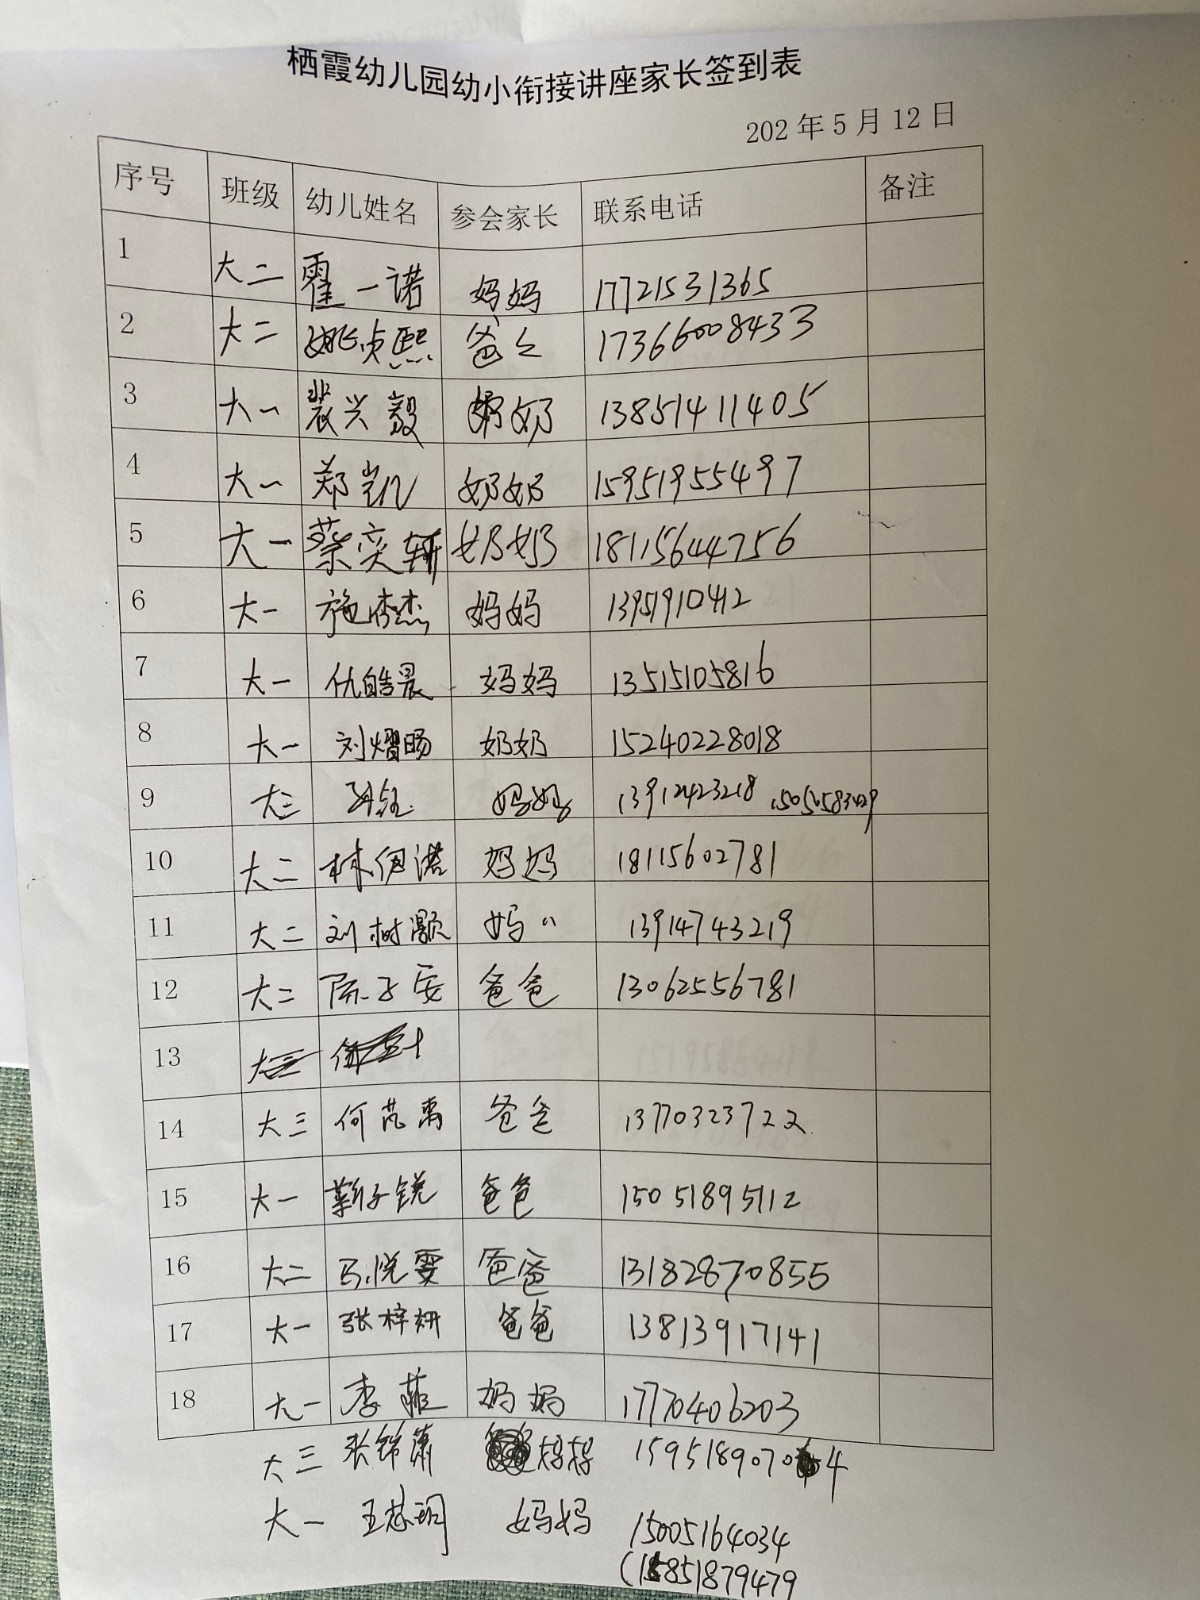 栖霞幼儿园幼小衔接讲座家长签到表
202 年 5 月 12 日
序号 班级 幼儿姓名 参会家长 联系电话 备注
1 大二 霍一诺 妈妈 17721531365
2 大二 姚贞熙 爸爸 17366008433
3 大一 裴兴毅 奶奶 13851411405
4 大一 郑凯 奶奶 15951955497
5 大一 蔡奕轩 奶奶 18115644756
6 大一 施 杰 妈妈
7 大一 仇皓晨 妈妈 13515105816
8 大一 刘熠旸 奶奶 15240228018
9 大三 妈妈 13912423218
10 大二 林伊诺 妈妈 18115602781
11 大二 刘树灏 妈 〃 13914743219
12 大二 陈子安 爸爸 13062556781
13
14 大三 何芃禹 爸爸 13770323722
15 大一 靳子锐 爸爸 15051895112
16 大二 马悦雯 爸爸 13182870855
17 大一 张梓妍 爸爸 13813917141
18 大一 李 妈妈 17770406203
大三 张锦萧 妈妈 15951890704
大一 王 妈妈 15005164034
(15851879479